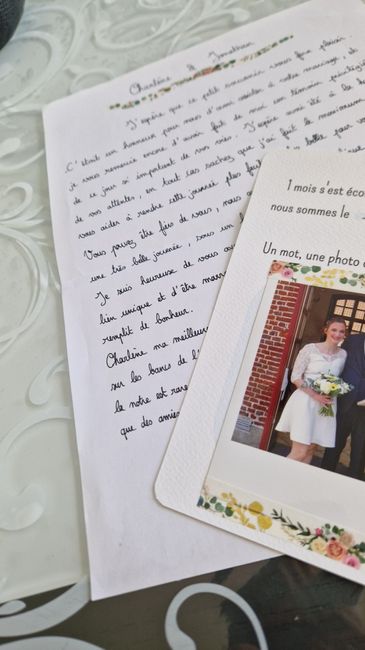 Charlène & Jonathan
J'espère que ce petit souvenir vous fera plaisir.
C'était un honneur pour moi d'avoir assister à votre mariage, et
je vous remercie encore d'avoir fait de moi un témoin privilégié
de ce jour si important de vos vies. J'espère avoir été à la
de vos attentes, en tout cas sachez que j'ai fait le maximum
vous aider à rendre cette journée plus
Vous pouvez être fiers de vous, nous
une très belle journée, sous un
Je suis heureuse de vous
lien unique et d'être
remplit de bonheur.
Charlène ma meilleure
sur les bancs de
la notre est rare
que des amies
1 mois s'est éco
nous sommes le
Un mot, une photo